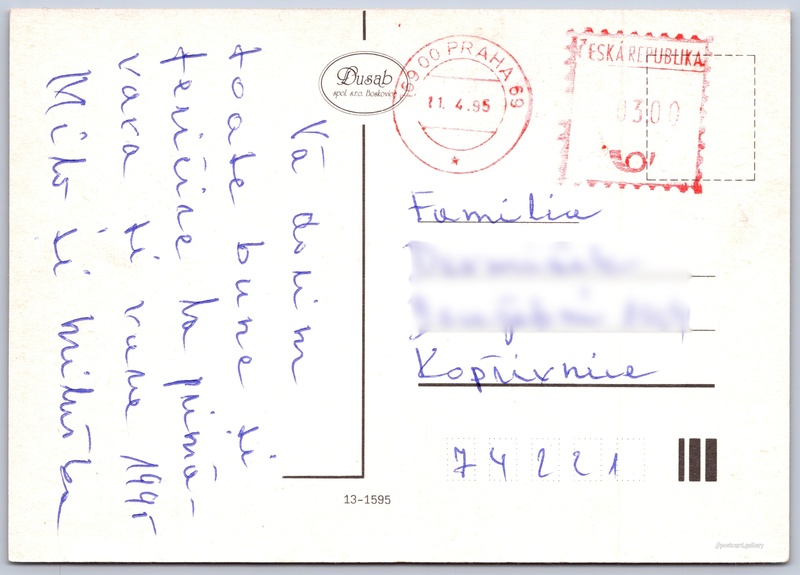 Vă dorim
toate bune și
fericire la primă-
vara și vara 1995
Milo și Miluška
Dusab
spol. s.r.o. Boskovice
PRAHA 69
11. 4.95
ČESKÁ REPUBLIKA
0300
Familia
Kopřivnice
74221
13-1595
//postcard.gallery